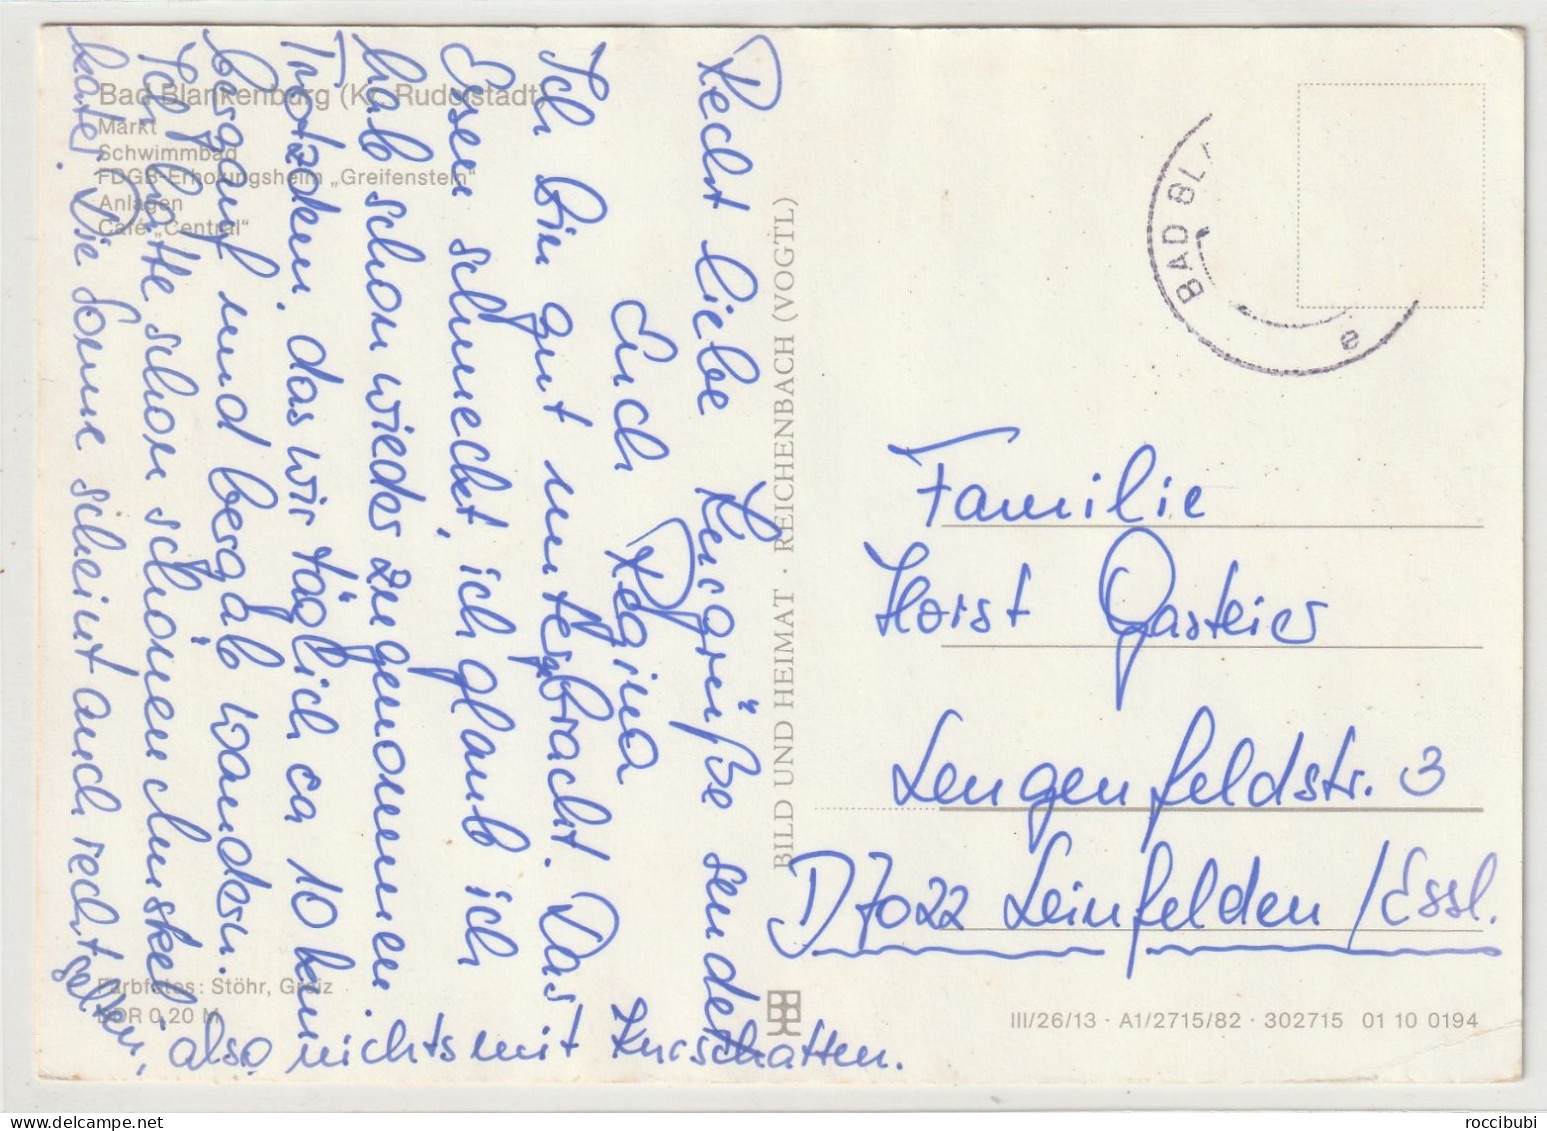 Bad Blankenburg (Kr. Rudolstadt)
Markt
Schwimmbad
FDGB-Erholungsheim „Greifenstein"
Anlagen
Café „Central"
Recht liebe Kurgrüße sendet
Euch Regina
Ich bin gut untergebracht. Das
Essen schmeckt, ich glaub ich
hab schon wieder zugenommen.
Trotzdem, das wir täglich ca 10 km
bergauf und bergab wandern.
Ich hatte schon schönen Muskel
kater. Die Sonne scheint auch recht selten,
also, nichts mit Kurschatten.
Farbfotos: Stöhr, Greiz
DDR 0,20 M
BILD UND HEIMAT · REICHENBACH (VOGTL)
BAD BL
a
Familie
Horst Gasteier
Lengenfeldstr. 3
D 7022 Leinfelden / Essl.
III/26/13 · A1/2715/82 · 302715 01 10 0194
www.delcampe.net
roccibubi